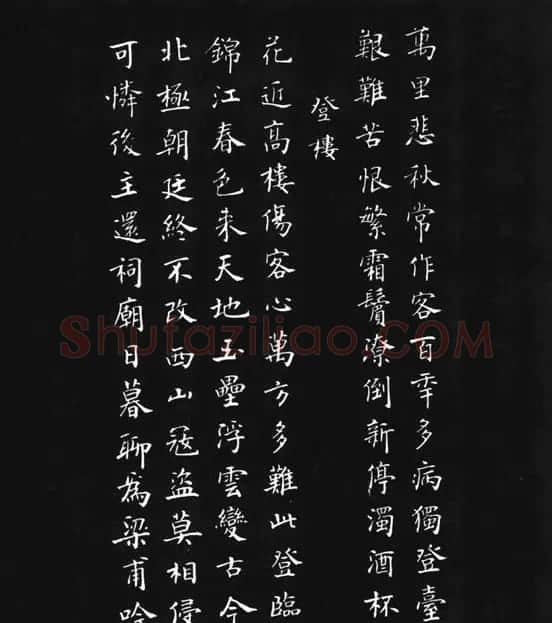 萬里悲秋常作客百年多病獨登臺
艱難苦恨繁霜鬢潦倒新停濁酒杯
登樓
花近高樓傷客心萬方多難此登臨
錦江春色来天地玉壘浮雲變古今
北極朝廷終不改西山寇盜莫相侵
可憐後主還祠廟日暮聊為梁甫吟
Shufaziliao.COM